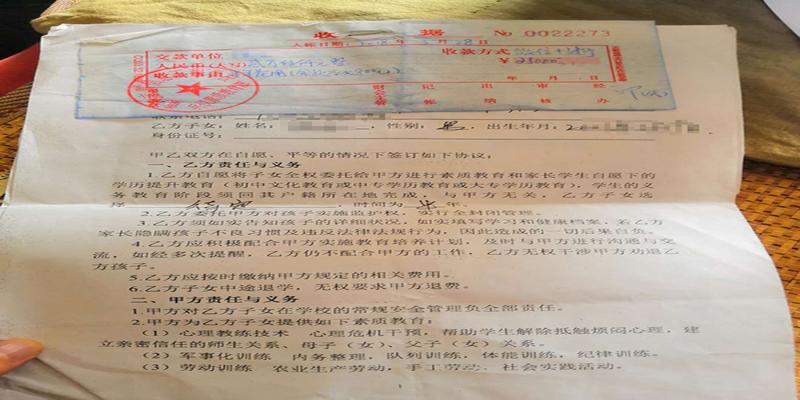 收 据 No 0022273
入帐日期：
交款单位 收款方式
人民币(大写) ￥
收款事由
年 月 日
财会 记帐 出纳 审核 经办
联系电话：
乙方子女：姓名： ，性别：男，出生年月：2
身份证号：
甲乙双方在自愿、平等的情况下签订如下协议：
一、乙方责任与义务
1.乙方自愿将子女全权委托给甲方进行素质教育和家长学生自愿下的
学历提升教育（初中文化教育或中专学历教育或大专学历教育），学生的义
务教育阶段须回其户籍所在地完成，与甲方无关，乙方子女选
择 ，时间为 年。
2.乙方委托甲方对孩子实施监护权，实行全封闭管理。
3.乙方须如实告知孩子的详细状况，如实填写学习和健康档案，若乙方
家长隐瞒孩子不良习惯及违反法律法规行为，因此造成的一切后果自负。
4.乙方应积极配合甲方实施教育培养计划，及时与甲方进行沟通与交
流，如经多次提醒，乙方仍不配合甲方的工作，乙方无权干涉甲方劝退乙
方孩子。
5.乙方应按时缴纳甲方规定的相关费用。
6.乙方子女中途退学，无权要求甲方退费。
二、甲方责任与义务
1.甲方对乙方子女在学校的常规安全管理负全部责任。
2.甲方为乙方子女提供如下素质教育：
（1）心理教练技术 心理危机干预，帮助学生解除抵触烦闷心理，建
立亲密信任的师生关系、母子（女）、父子（女）关系。
（2）军事化训练 内务整理，队列训练，体能训练，纪律训练。
（3）劳动训练 农业生产劳动，手工劳动、社会实践活动。
1